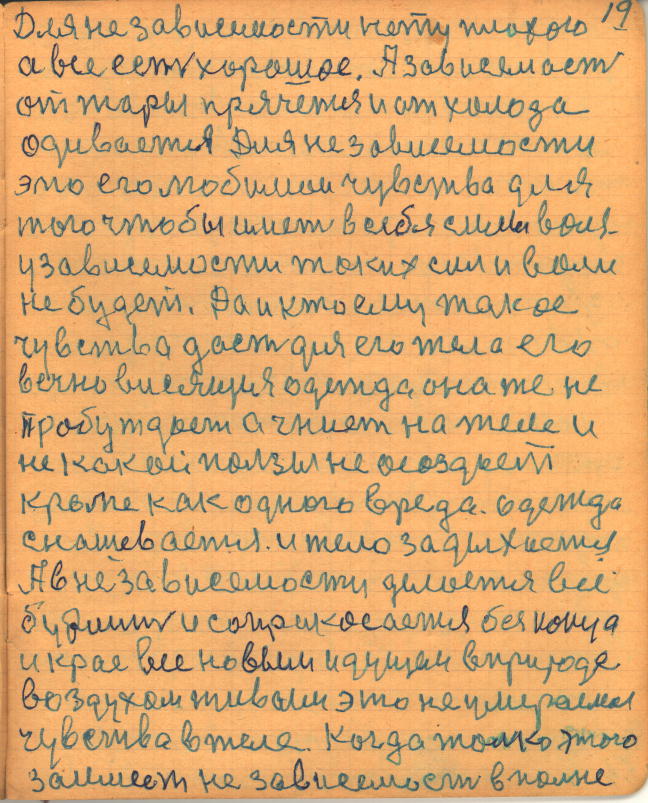 19
Для не зависемости нету плохого
а все есть хорошое. А зависемость
от жары прячется и от холода
одивается Для не зависемости
это его любимои чувства для
того чтобы имет в себя силы воля
у зависемости таких сил и воли
не будет. Да и кто ему такое
чувства даст для его тела его
вечно висящия одежда она же не
пробуждает а гниет на теле и
не какой ползы не создает
кроме как одного вреда. одежда
снашевается. и тело задыхается
А в не зависемости делается все
будит и соприкосается без конца
и края все новым идущем в природе
воздухом живым это не умираемая
чувства в теле. Когда толко этого
займет не зависемост в полне